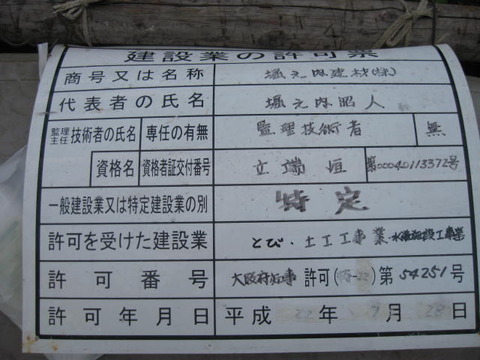 建設業の許可票
商号又は名称 堀之内建材(株)
代表者の氏名 堀之内昭人
監理 主任 技術者の氏名 専任の有無 監理技術者 無
資格名 資格者証交付番号 立端 垣 第00040113372号
一般建設業又は特定建設業の別 特定
許可を受けた建設業 とび・土工工事業・水道施設工事業
許可番号 大阪府知事 許可( )第54251号
許可年月日 平成22年7月28日